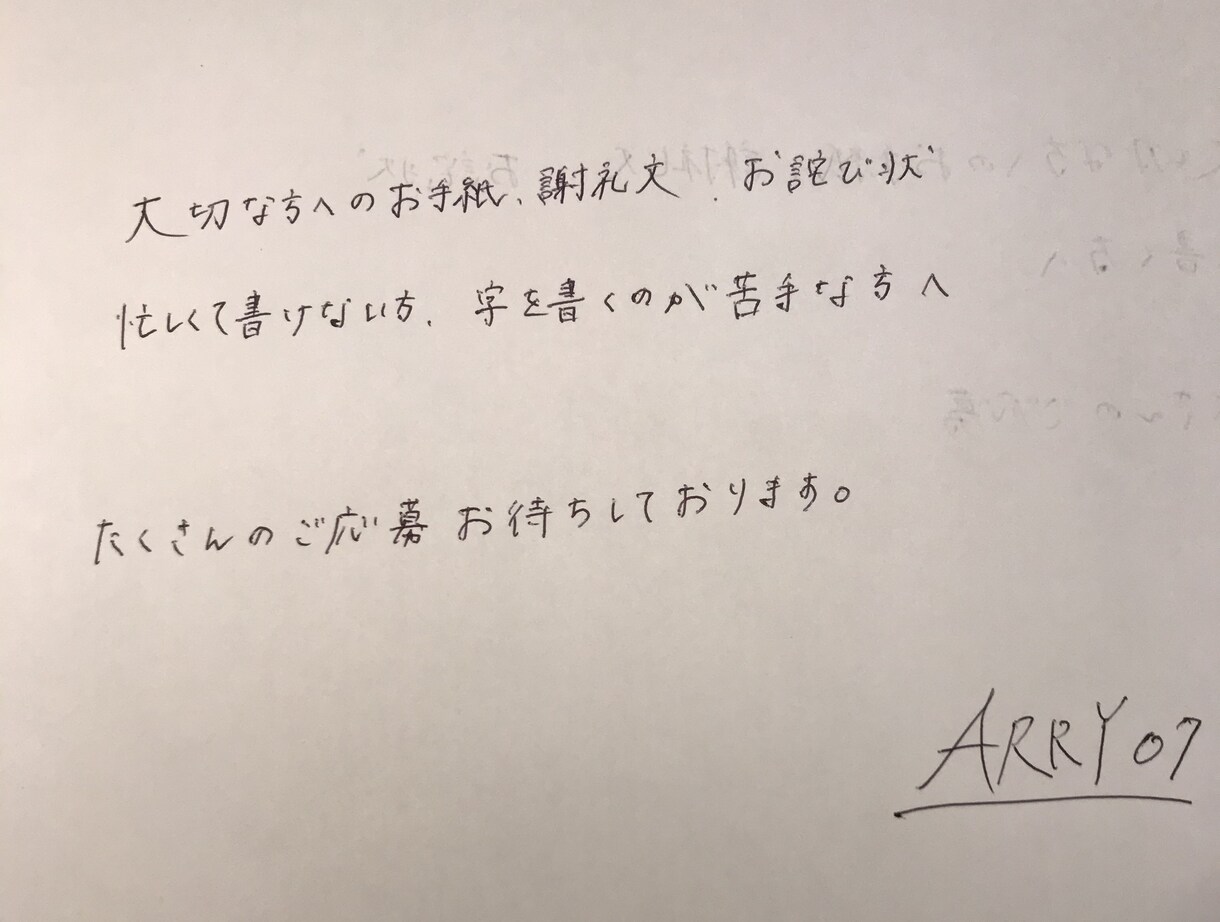 大切な方へのお手紙、謝礼文、お詫び状
忙しくて書けない方、字を書くのが苦手な方へ
たくさんのご応募お待ちしております。
ARRY07